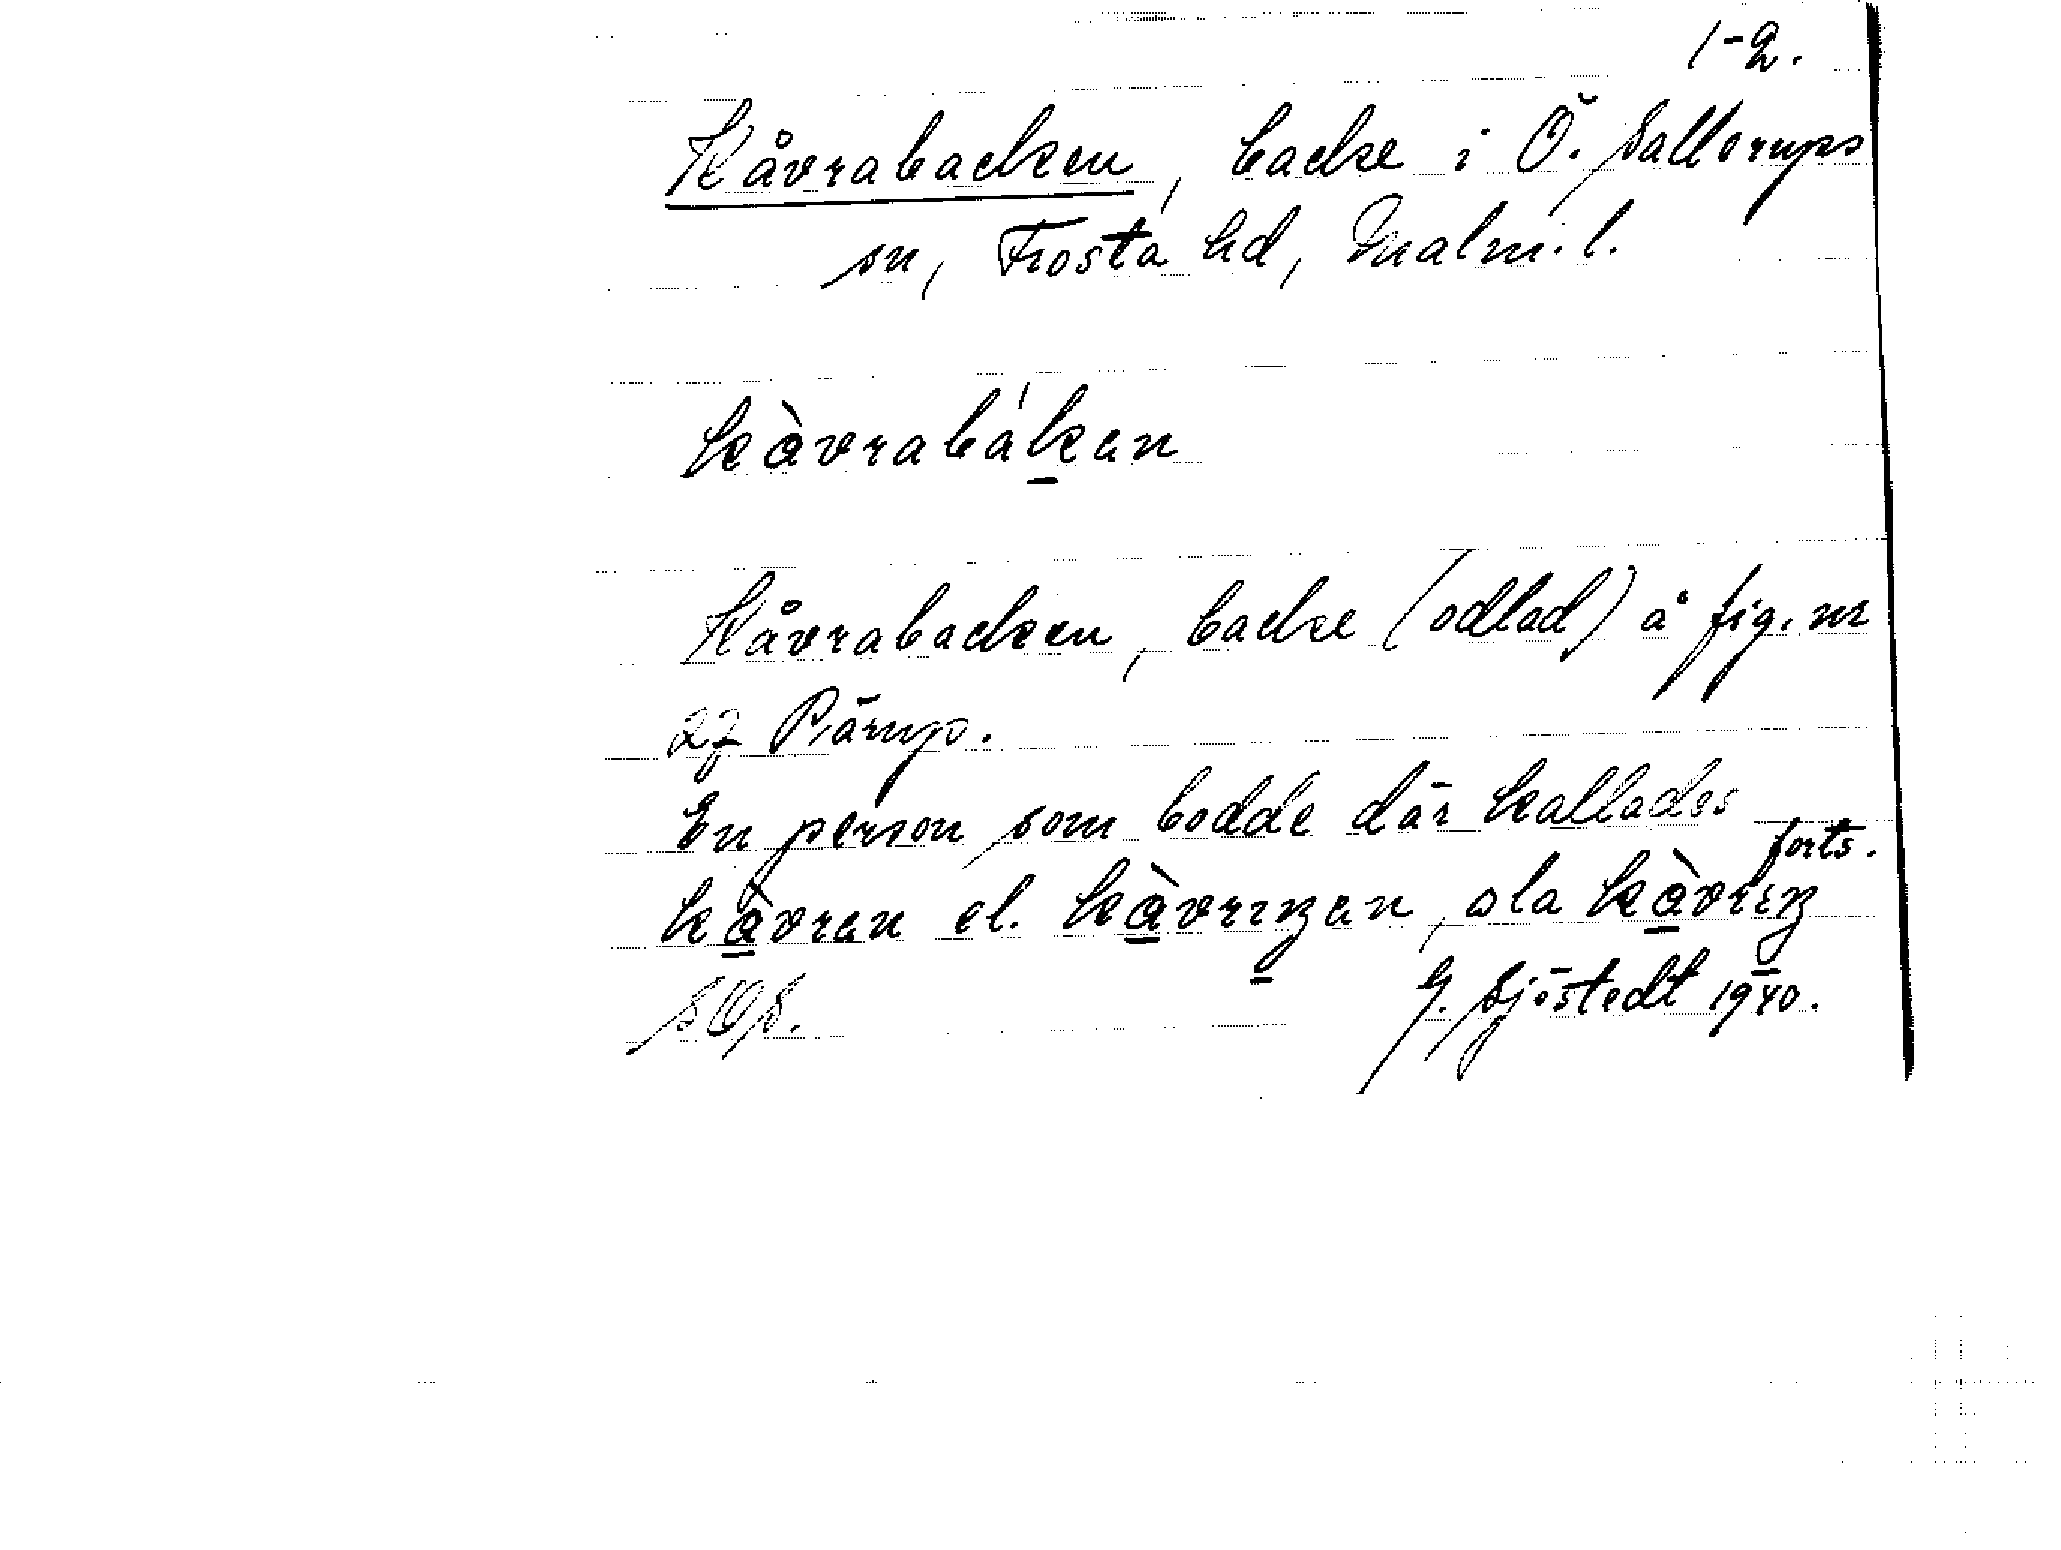 1-2.
Kåvrabacken, backe i Ö. Sallerups
sn, Frosta hd, Malm. l.
kàvrabákan
Kåvrabacken, backe (odlad) å fig. nr
27 Pärup.
En person som bodde där kallades
forts.
kàvran el. kàvrıŋan, ola kàvrıŋ
G. Sjöstedt 1940.